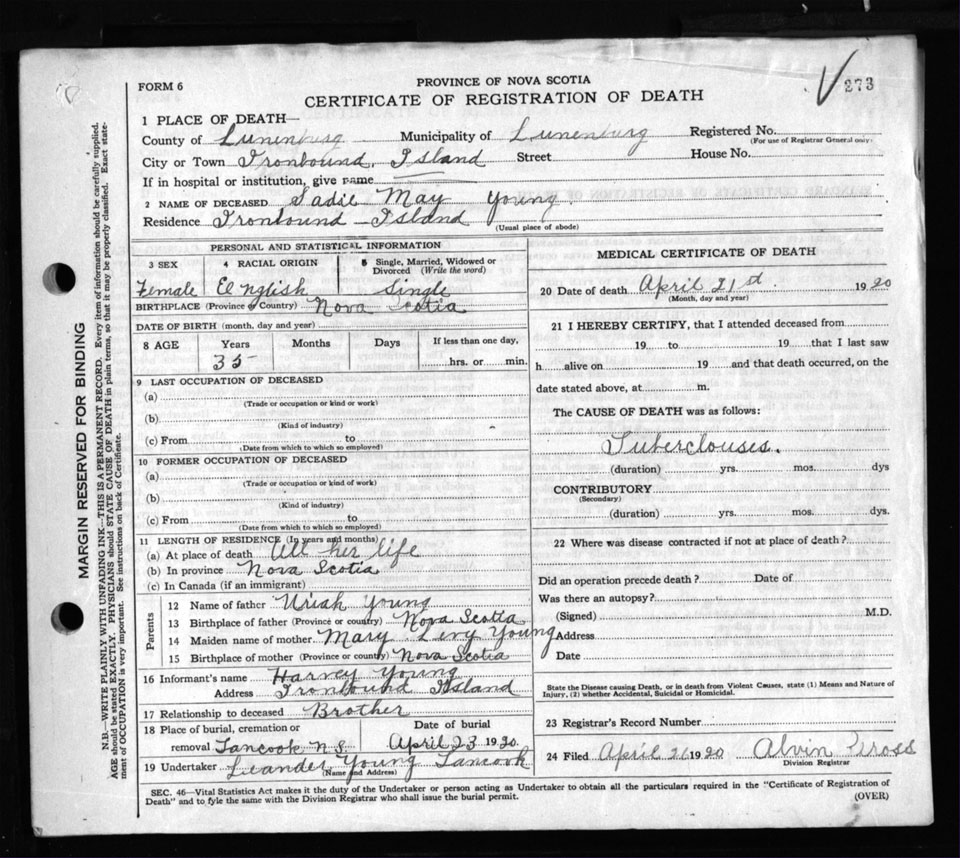 FORM 6
PROVINCE OF NOVA SCOTIA
CERTIFICATE OF REGISTRATION OF DEATH
273
1 PLACE OF DEATH—
County of Lunenburg Municipality of Lunenburg Registered No.
(For use of Registrar General only)
City or Town Ironbound, Island Street House No.
If in hospital or institution, give name
2 NAME OF DECEASED Sadie May Young
Residence Ironbound Island
(Usual place of abode)
PERSONAL AND STATISTICAL INFORMATION
3 SEX 4 RACIAL ORIGIN 5 Single, Married, Widowed or Divorced (Write the word)
Female English Single
BIRTHPLACE (Province or Country) Nova Scotia
DATE OF BIRTH (month, day and year)
8 AGE Years Months Days If less than one day,
35 hrs. or min.
9 LAST OCCUPATION OF DECEASED
(a)
(Trade or occupation or kind or work)
(b)
(Kind of industry)
(c) From to
(Date from which to which so employed)
10 FORMER OCCUPATION OF DECEASED
(a)
(Trade or occupation or kind of work)
(b)
(Kind of industry)
(c) From to
(Date from which to which so employed)
11 LENGTH OF RESIDENCE (In years and months)
(a) At place of death All her life
(b) In province Nova Scotia
(c) In Canada (if an immigrant)
Parents
12 Name of father Uriah Young
13 Birthplace of father (Province or country) Nova Scotia
14 Maiden name of mother Mary Levy Young
15 Birthplace of mother (Province or country) Nova Scotia
16 Informant's name Harvey Young
Address Ironbound Island
17 Relationship to deceased Brother
18 Place of burial, cremation or removal Tancook N S Date of burial April 23 1920
19 Undertaker Leander Young Tancook
(Name and Address)
MEDICAL CERTIFICATE OF DEATH
20 Date of death April 21st 1920
(Month, day and year)
21 I HEREBY CERTIFY, that I attended deceased from
19 to 19 that I last saw
h alive on 19 and that death occurred, on the
date stated above, at m.
The CAUSE OF DEATH was as follows:
Tuberclouses.
(duration) yrs. mos. dys
CONTRIBUTORY
(Secondary)
(duration) yrs. mos. dys.
22 Where was disease contracted if not at place of death?
Did an operation precede death? Date of
Was there an autopsy?
(Signed) M.D.
Address
Date
State the Disease causing Death, or in death from Violent Causes, state (1) Means and Nature of
Injury, (2) whether Accidental, Suicidal or Homicidal.
23 Registrar's Record Number
24 Filed April 26 1920 Alvin Cross
Division Registrar
SEC. 46—Vital Statistics Act makes it duty of the Undertaker or person acting as Undertaker to obtain all the particulars required in the "Certificate of Registration of
Death" and to fyle the same with the Division Registrar who shall issue the burial permit.
(OVER)
MARGIN RESERVED FOR BINDING
N.B.—WRITE PLAINLY WITH UNFADING INK—THIS IS A PERMANENT RECORD. Every item of information should be carefully supplied.
AGE should be stated EXACTLY. PHYSICIANS should STATE CAUSE OF DEATH in plain terms, so that it may be properly classified. Exact state-
ment of OCCUPATION is very important. See instructions on back of Certificate.